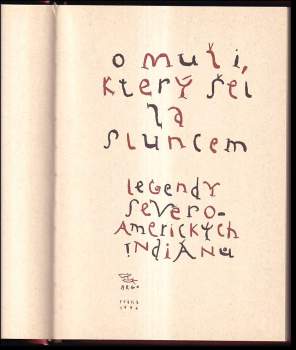 o muži,
který šel
za
sluncem
legendy
severo-
amerických
indiánů
ARGO
PRAHA